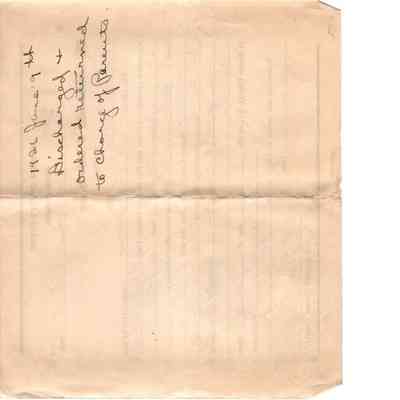 1926 June 9th
Discharged &
ordered returned
to Charge of Parents